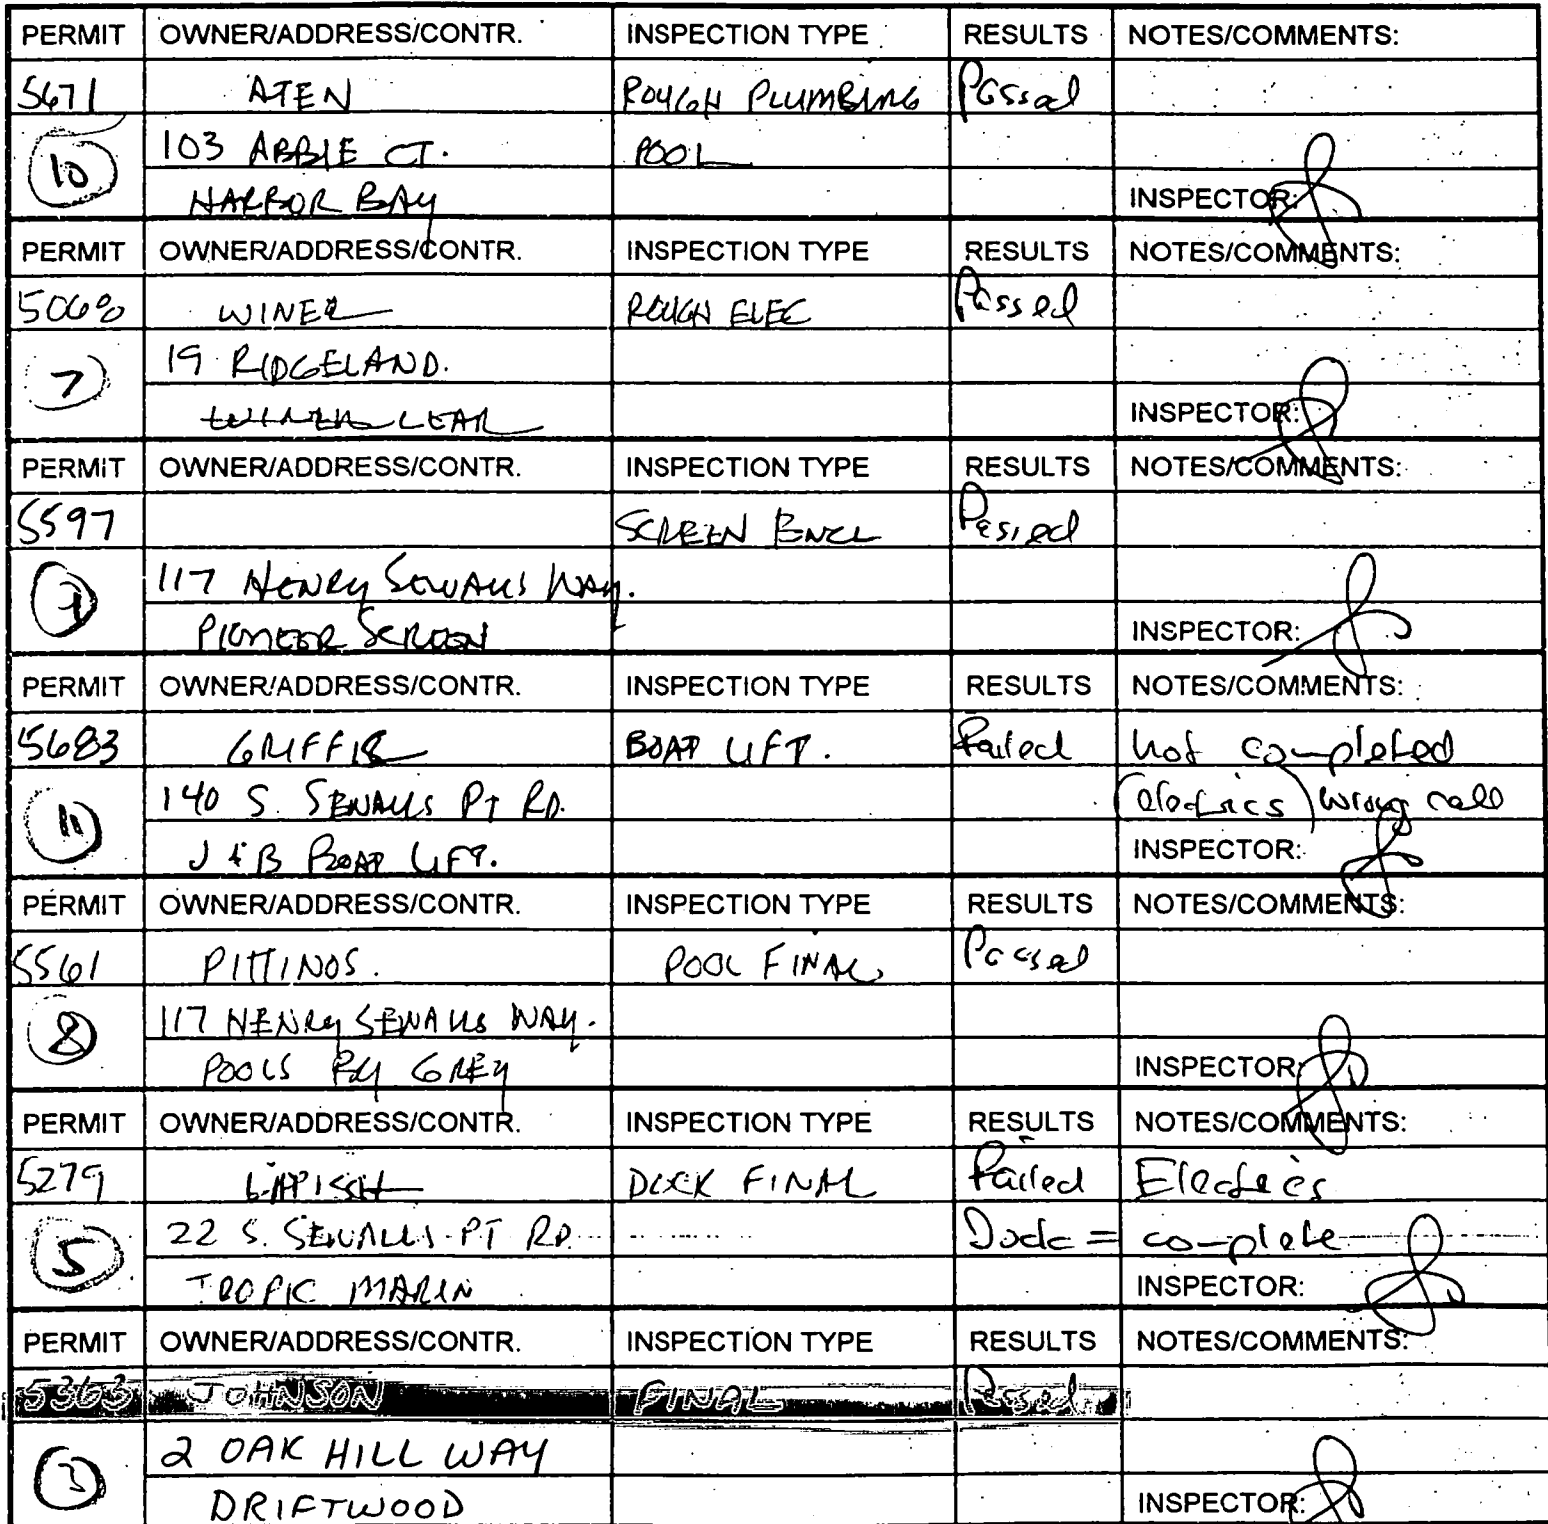 PERMIT OWNER/ADDRESS/CONTR. INSPECTION TYPE RESULTS NOTES/COMMENTS:
5671 ATEN ROUGH PLUMBING Passed
10 103 ABBIE CT. POOL
HARBOR BAY INSPECTOR:
PERMIT OWNER/ADDRESS/CONTR. INSPECTION TYPE RESULTS NOTES/COMMENTS:
5068 WINER ROUGH ELEC Passed
7 19 RIDGELAND.
LEAR INSPECTOR:
PERMIT OWNER/ADDRESS/CONTR. INSPECTION TYPE RESULTS NOTES/COMMENTS:
5597 SCREEN ENCL Passed
117 HENRY SEWALLS WAY.
PIONEER SCREEN INSPECTOR:
PERMIT OWNER/ADDRESS/CONTR. INSPECTION TYPE RESULTS NOTES/COMMENTS:
5683 BOAT LIFT. Failed not completed
11 140 S. SEWALLS PT RD. (electrics) wrong call
J & B BOAT LIFT. INSPECTOR:
PERMIT OWNER/ADDRESS/CONTR. INSPECTION TYPE RESULTS NOTES/COMMENTS:
5561 PITTINOS. POOL FINAL Passed
8 117 HENRY SEWALLS WAY.
POOLS BY GREY INSPECTOR:
PERMIT OWNER/ADDRESS/CONTR. INSPECTION TYPE RESULTS NOTES/COMMENTS:
5279 DOCK FINAL Failed Electrics
5 22 S. SEWALLS PT RD. Dock = complete
TROPIC MARIN INSPECTOR:
PERMIT OWNER/ADDRESS/CONTR. INSPECTION TYPE RESULTS NOTES/COMMENTS:
5363 JOHNSON FINAL Passed
3 2 OAK HILL WAY
DRIFTWOOD INSPECTOR: